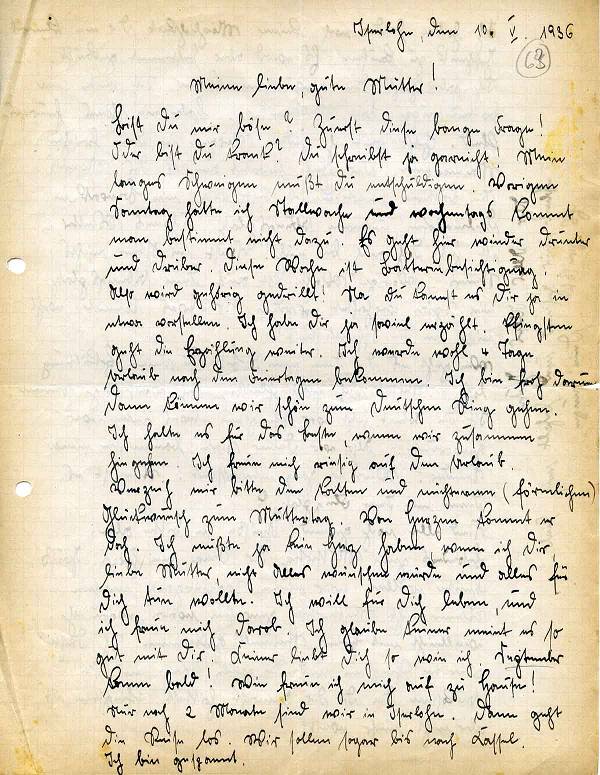 Iserlohn, den 10. V. 1936
63
Meine liebe, gute Mutter!
Bist Du mir böse? Zuerst diese bange Frage!
Oder bist Du krank? Du schreibst ja garnicht! Mein
langes Schweigen mußt Du entschuldigen. Vorigen
Sonntag hatte ich Stallwache und wochentags kommt
man bestimmt nicht dazu. Es geht hier wieder drunter
und drüber. Diese Woche ist Batteriebesichtigung.
Also wird gehörig gedrillt! Na Du kannst es Dir ja in
etwa vorstellen. Ich habe Dir ja soviel erzählt. Pfingsten
geht die Erzählung weiter. Ich werde wohl 4 Tage
Urlaub nach den Feiertagen bekommen. Ich bin froh darum
dann können wir schön zum Deutschen Ring gehen.
Ich halte es für das beste, wenn wir zusammen
hingehen. Ich freue mich riesig auf den Urlaub.
Verzeih mir bitte den kalten und nüchternen (förmlichen)
Glückwunsch zum Muttertag. Von Herzen kommt er
doch. Ich müßte ja kein Herz haben, wenn ich Dir,
liebe Mutter, nicht alles wünschen würde und alles für
Dich tun wollte. Ich will für Dich leben, und
ich freue mich darob. Ich glaube keiner meint es so
gut mit Dir. Keiner liebt Dich so wie ich. September
komm bald! Wie freue ich mich auf zu Hause!
Nur noch 2 Monate sind wir in Iserlohn. Dann geht
die Reise los. Wir sollen sogar bis nach Kassel.
Ich bin gespannt.